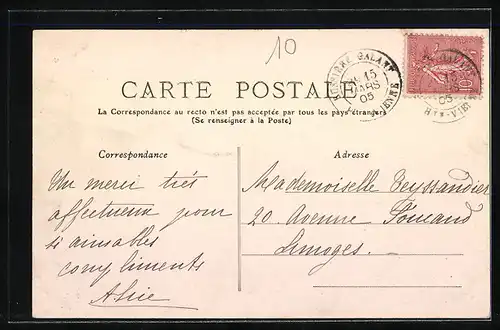 10
CARTE POSTALE
La Correspondance au recto n'est pas acceptée par tous les pays étrangers
(Se renseigner à la Poste)
15
MARS
05
Correspondance
Adresse
Un merci très
affectueux pour
si aimables
compliments
Alice
Mademoiselle Teyssandier
20 Avenue
Limoges.